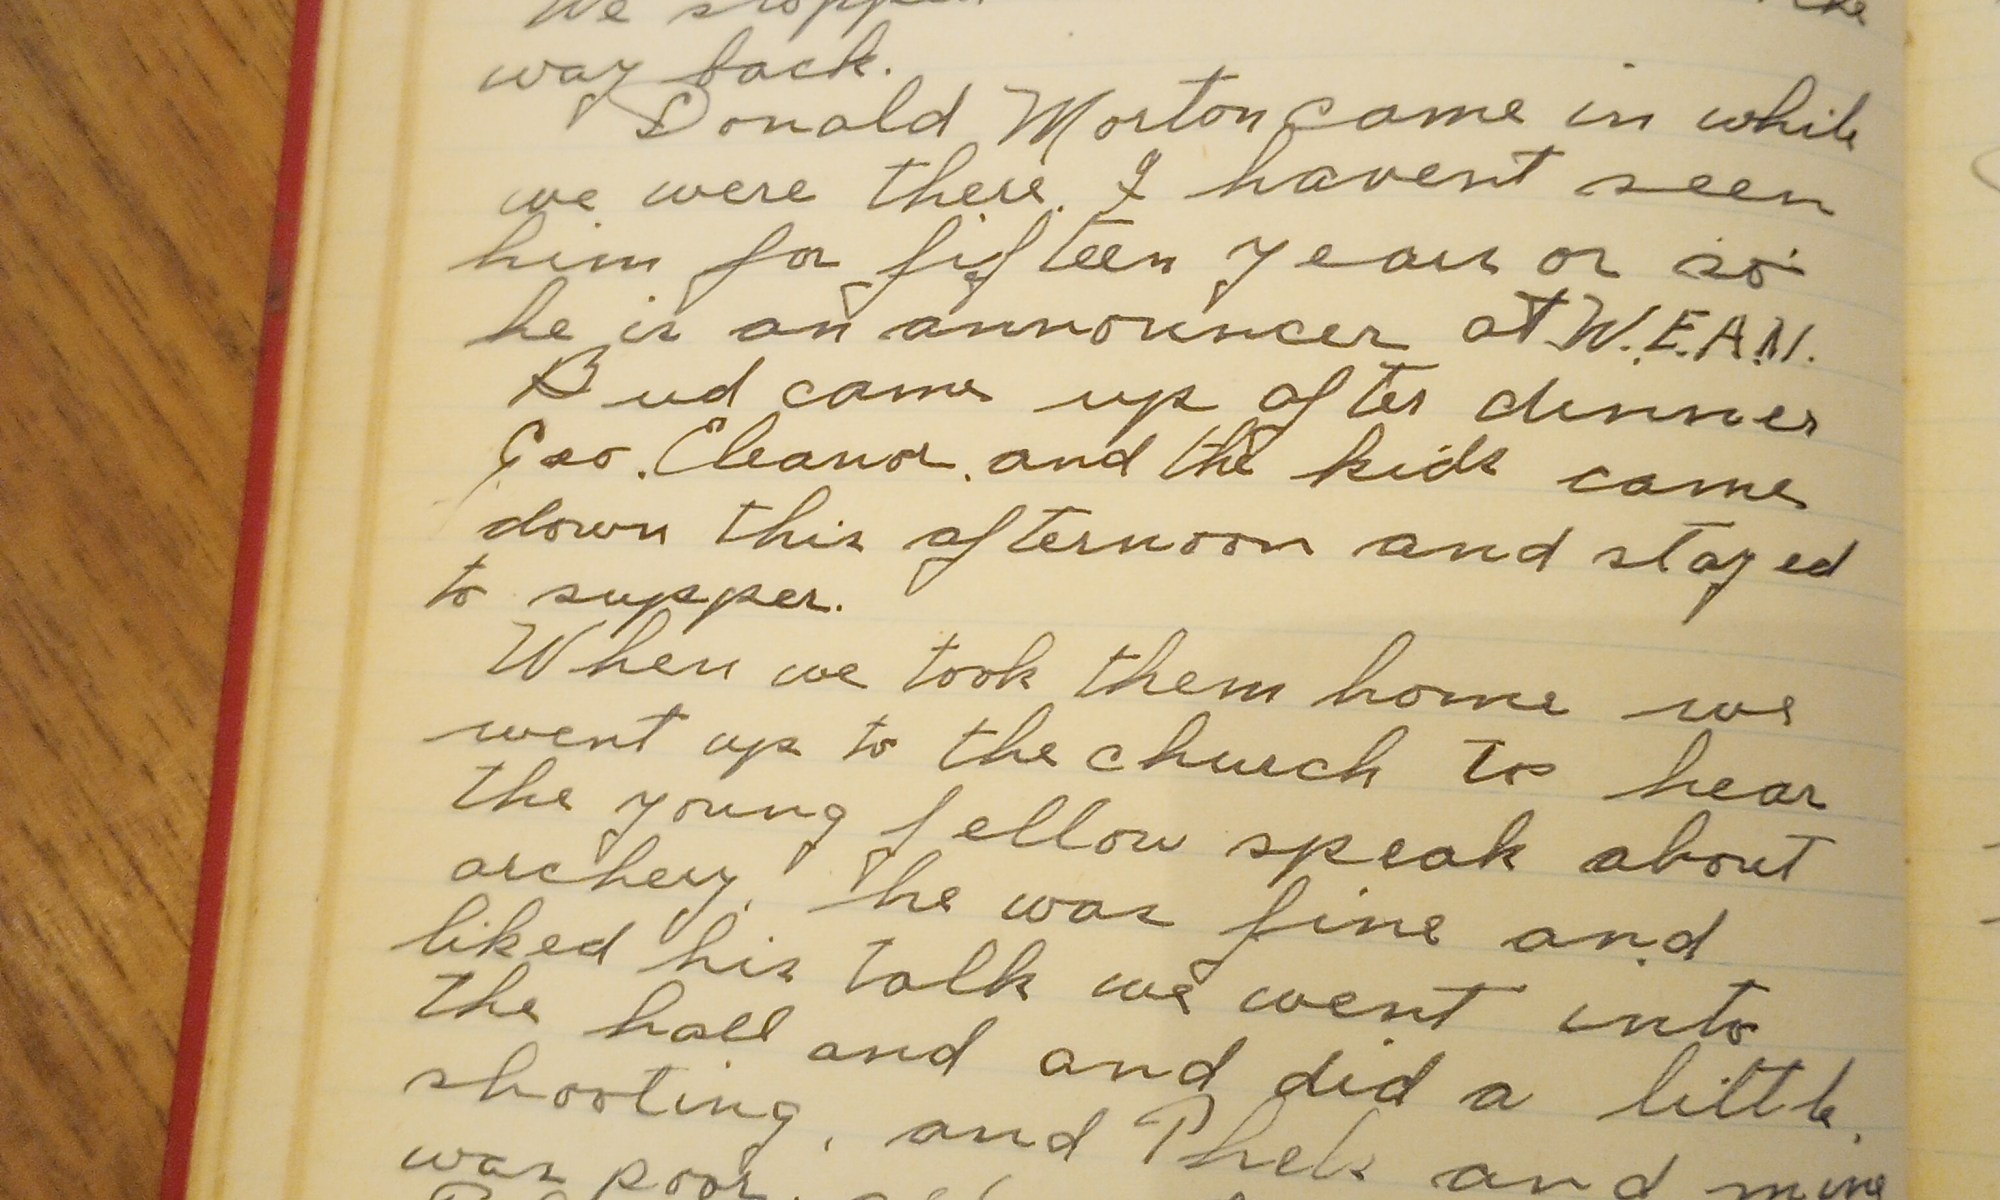 We stopped the
way back.
Donald Morton came in while
we were there. I havent seen
him for fifteen years or so
he is an announcer at W.E.A.N.
Bud came up after dinner
Geo. Eleanor and the kids came
down this afternoon and stayed
to supper.
When we took them home we
went up to the church to hear
the young fellow speak about
archery, he was fine and
liked his talk we went into
the hall and and did a little
shooting, and Phels and mine
was poor.